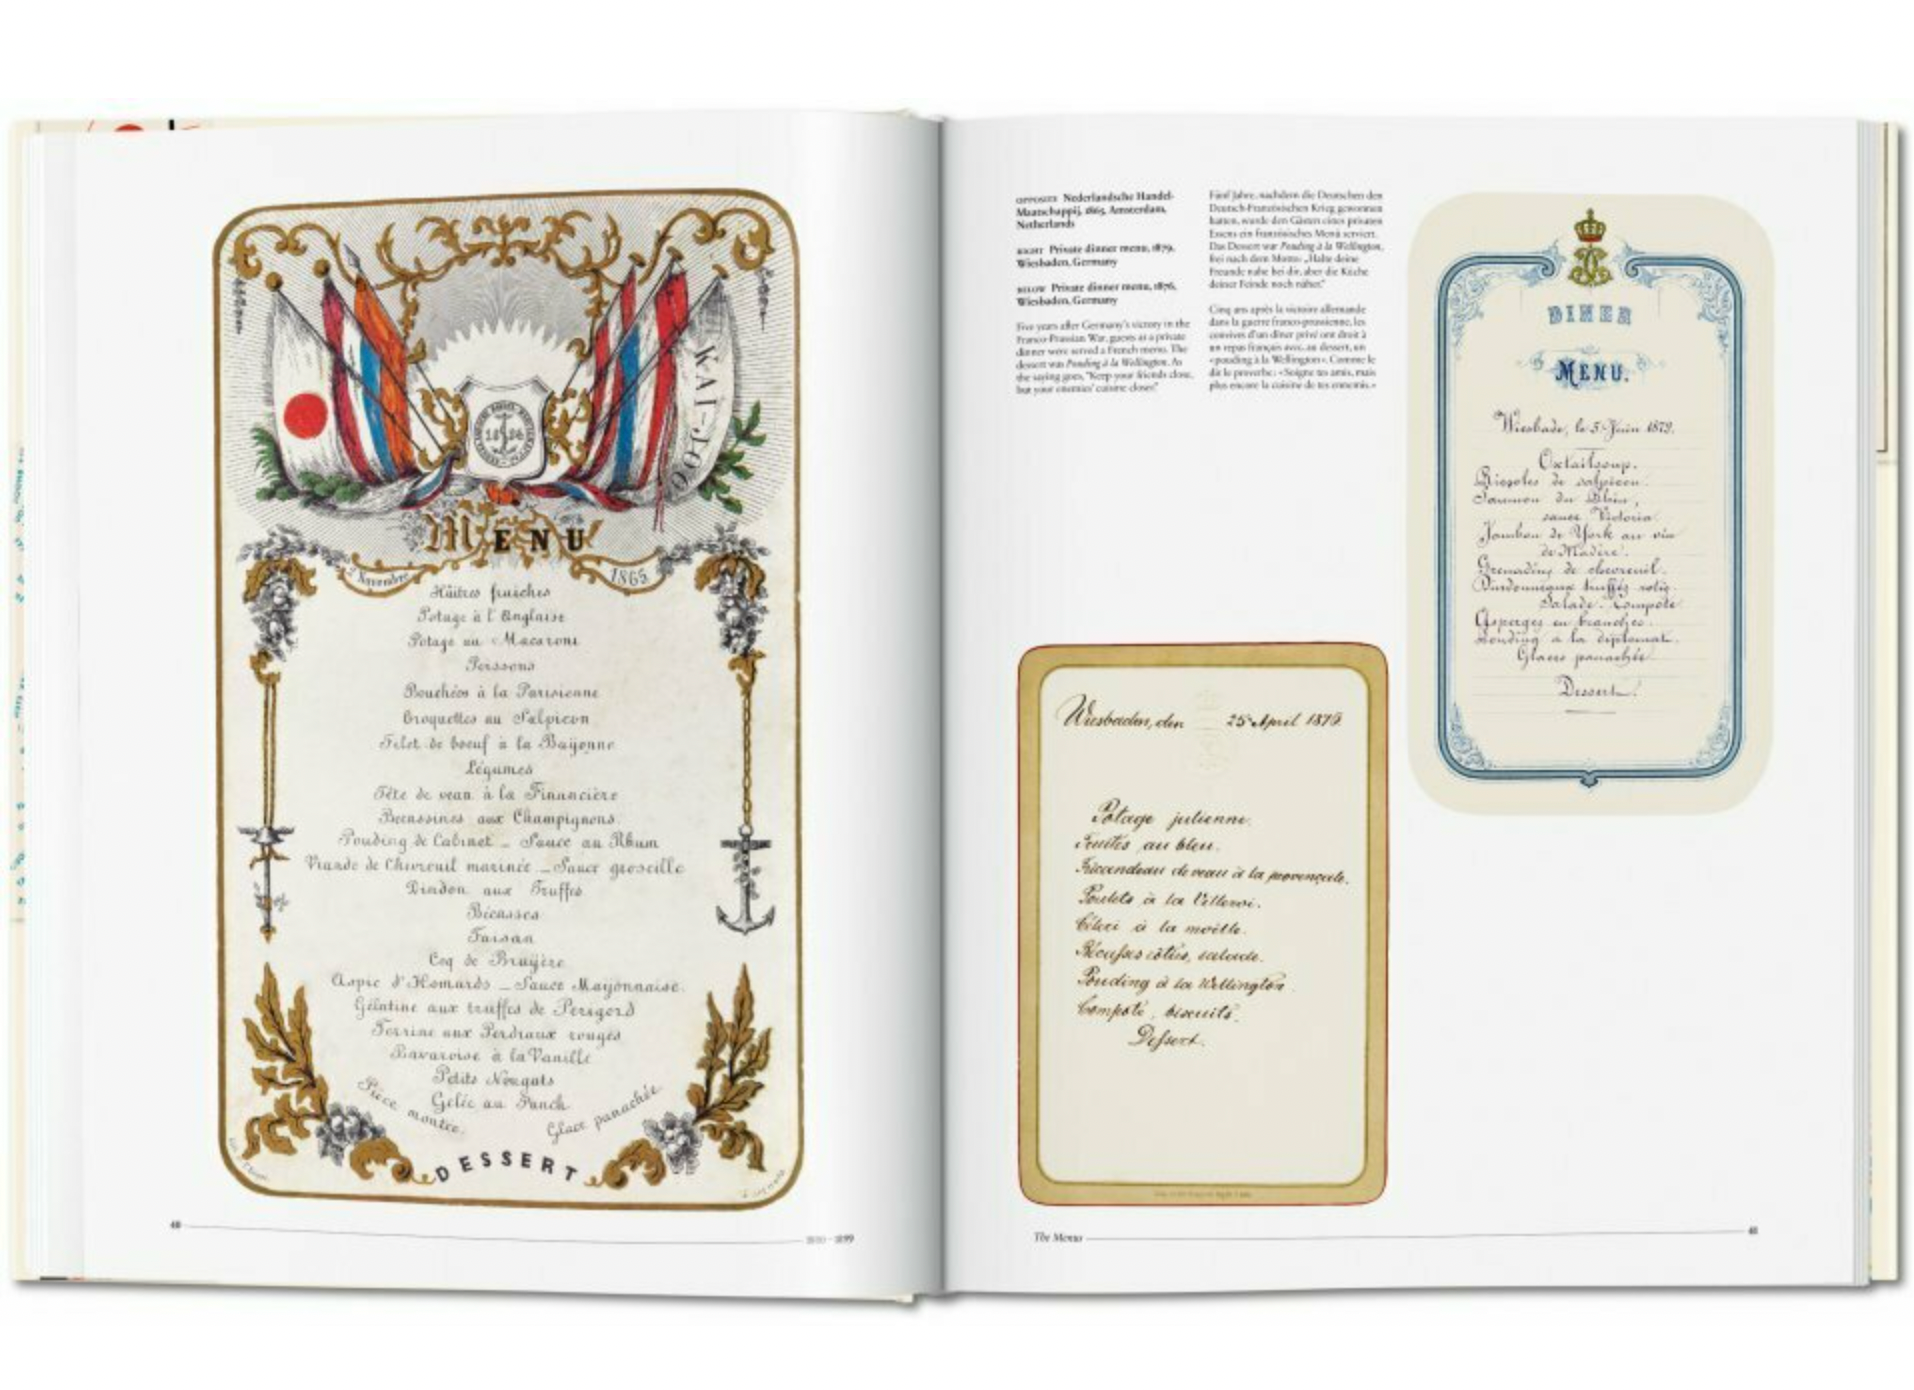 WAI-JOO
18 24
MENU
2 Novembre 1865
Hûitres fraiches
Potage à l'Anglaise
Potage au Macaroni
Poissons
Bouchées à la Parisienne
Croquettes au Salpicon
Filet de boeuf à la Bayonne
Légumes
Tête de veau à la Financière
Becassines aux Champignons
Pouding de Cabinet _ Sauce au Rhum
Viande de Chevreuil marinée _ Sauce groseille
Dindon aux Truffes
Bécasses
Faisan
Coq de Bruyère
Aspic d'Homards _ Sauce Mayonnaise.
Gélatine aux truffes de Perigord
Terrine aux Perdraux rouges
Bavaroise à la Vanille
Petits Nougats
Gelée au Punch
Pièce montée.
Glace panachée
DESSERT
40
1800–1899
OPPOSITE Nederlandsche Handel-
Maatschappij, 1865, Amsterdam,
Netherlands
RIGHT Private dinner menu, 1879,
Wiesbaden, Germany
BELOW Private dinner menu, 1876,
Wiesbaden, Germany
Five years after Germany's victory in the
Franco-Prussian War, guests at a private
dinner were served a French menu. The
dessert was Pouding à la Wellington. As
the saying goes, "Keep your friends close,
but your enemies' cuisine closer."
Fünf Jahre, nachdem die Deutschen den
Deutsch-Französischen Krieg gewonnen
hatten, wurde den Gästen eines privaten
Essens ein französisches Menü serviert.
Das Dessert war Pouding à la Wellington,
frei nach dem Motto: „Halte deine
Freunde nahe bei dir, aber die Küche
deiner Feinde noch näher."
Cinq ans après la victoire allemande
dans la guerre franco-prussienne, les
convives d'un dîner privé ont droit à
un repas français avec, au dessert, un
«pouding à la Wellington». Comme le
dit le proverbe: «Soigne tes amis, mais
plus encore la cuisine de tes ennemis.»
DINER
MENU.
Wiesbade, le 5 Juin 1879.
Oxtailsoup.
Rissoles de salpicon.
Saumon du Rhin,
sauce Victoria
Jambon de York au vin
de Madère.
Grenadins de chevreuil.
Dindonneaux truffés rotis.
Salade. Compote
Asperges en branches.
Pouding a la diplomat.
Glaces panachée
Dessert.
Wiesbaden, den 25 April 1876.
Potage julienne.
Truites au bleu.
Fricandeau de veau à la provençale.
Poulets à la Villeroi.
Céleri à la moëlle.
Bécasses rôties, salade.
Pouding à la Wellington.
Compote, biscuits.
Dessert.
The Menus
41